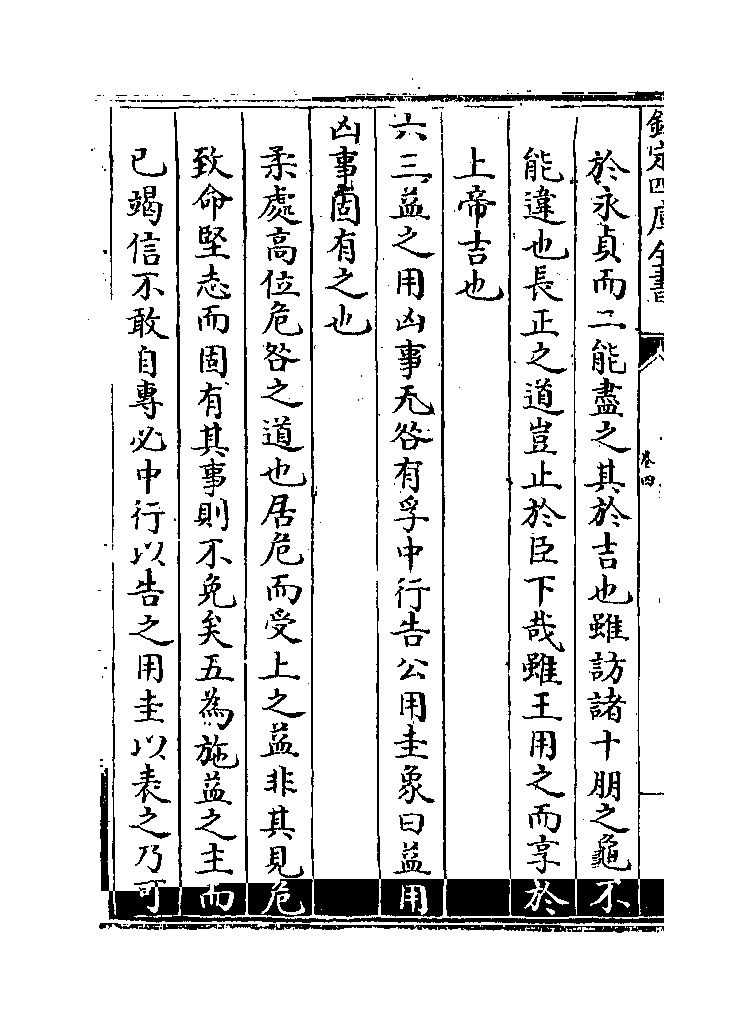 欽定四庫全書
卷四
於永貞而二能盡之其於吉也雖訪諸十朋之龜不
能違也長正之道豈止於臣下哉雖王用之而享於
上帝吉也
六三益之用凶事无咎有孚中行告公用圭象曰益用
凶事固有之也
柔處高位危咎之道也居危而受上之益非其見危
致命堅志而固有其事則不免矣五為施益之主而
已竭信不敢自專必中行以告之用圭以表之乃可